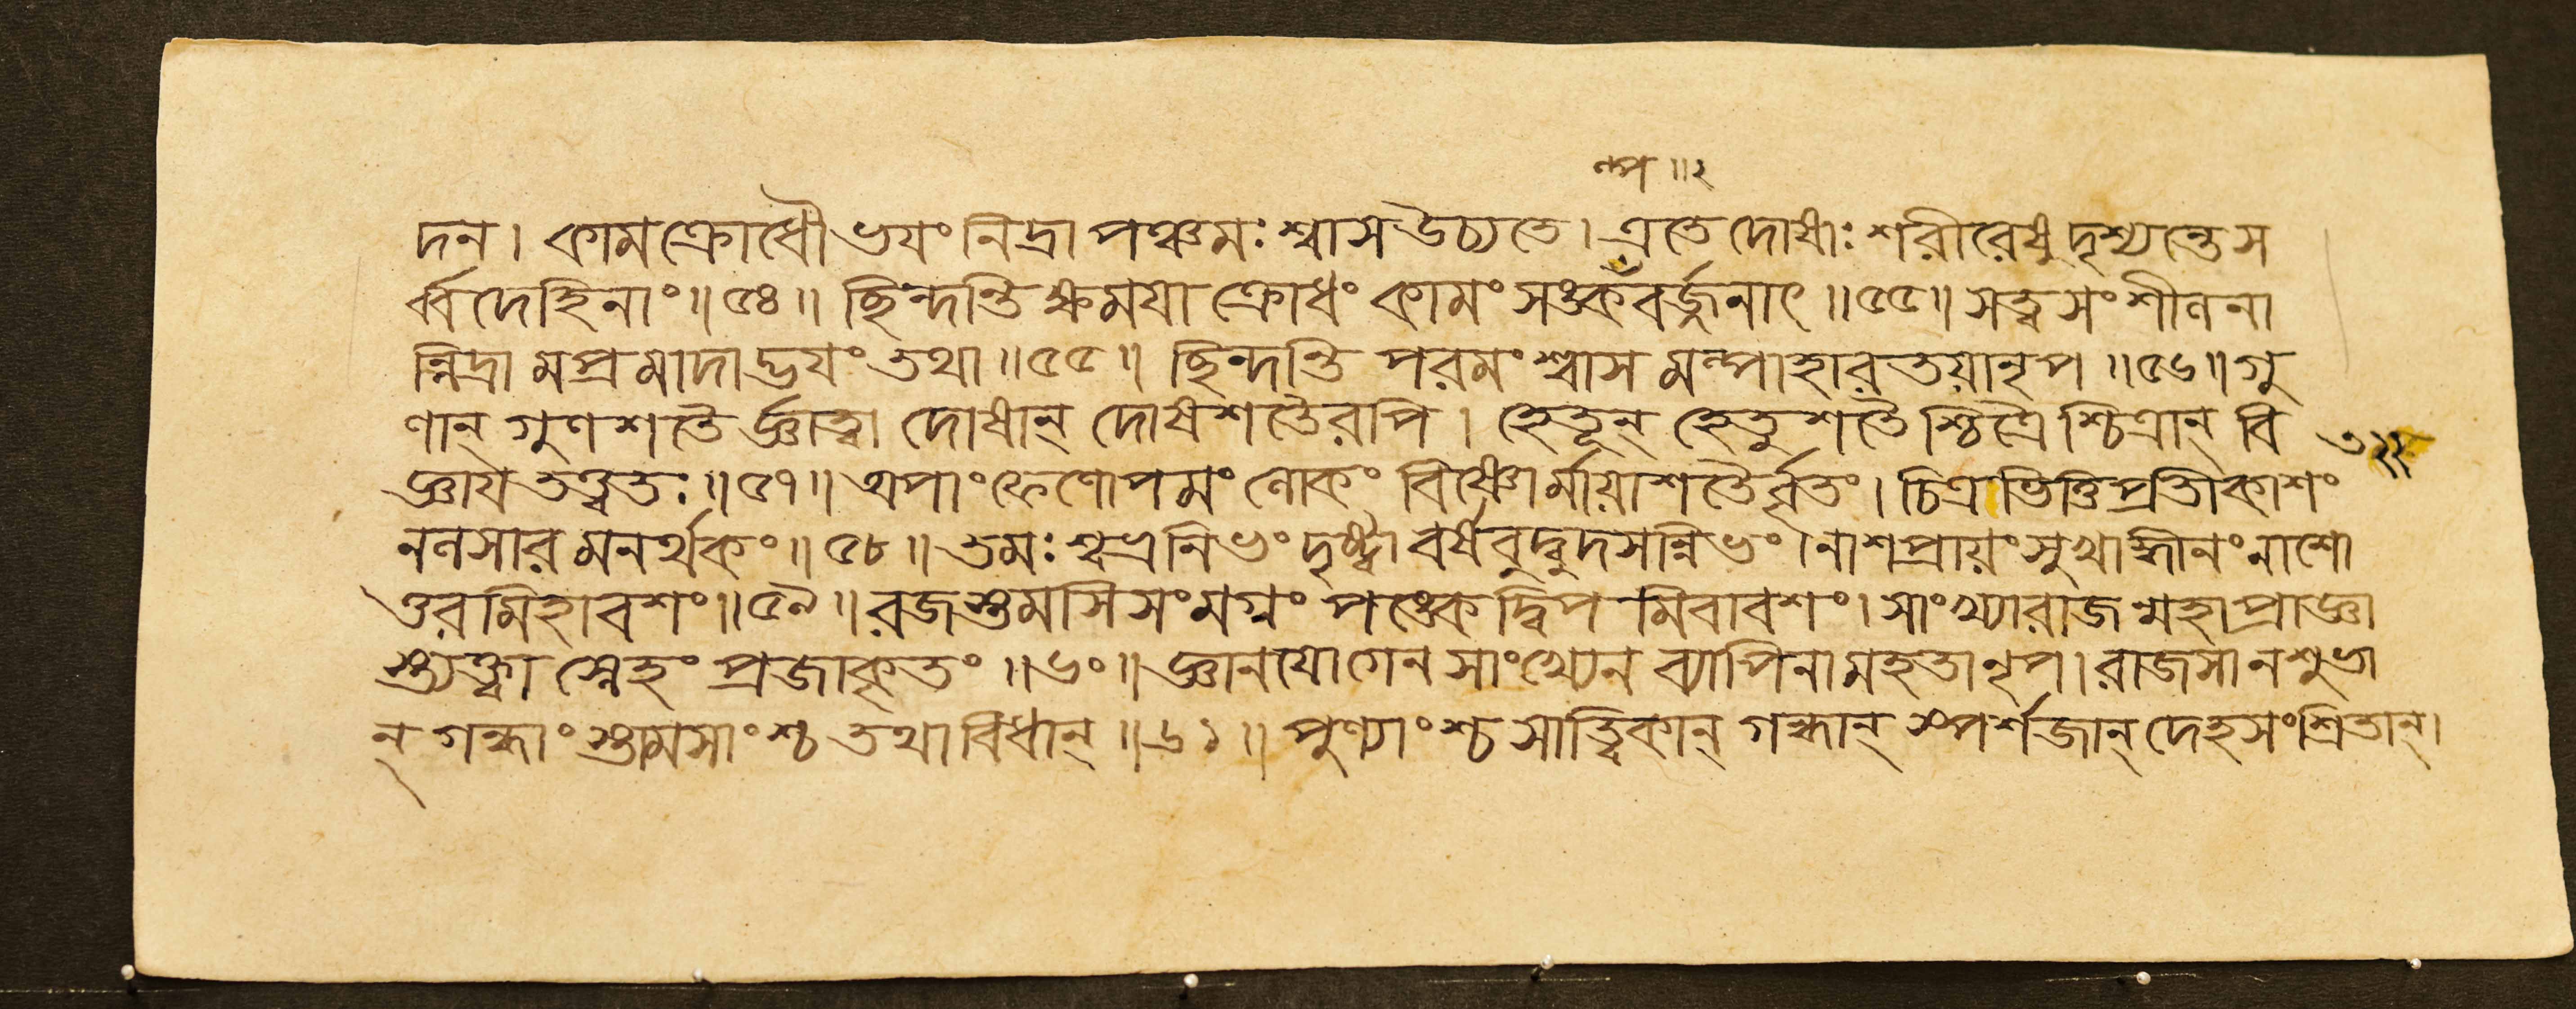 ল্প ॥ ২
দন । কামক্রোধৌ ভযং নিদ্রা পঞ্চমঃ শ্বাস উচ্যতে । এতে দোষাঃ শরীরেষু দৃশ্যন্তে স
র্ব্বদেহিনাং ॥ ৫৪ ॥ ছিন্দন্তি ক্ষমযা ক্রোধং কামং সঙ্কবর্জ্জনাৎ ॥ ৫৫ ॥ সত্ত্বসংশীলনা
ন্নিদ্রামপ্রমাদাদ্ভযং তথা ॥ ৫৫ ॥ ছিন্দন্তি পরমং শ্বাসমল্পাহারতয়ানৃপ ॥ ৫৬ ॥ গু
ণান্ গুণশতৈর্জ্ঞাত্বা দোষান্ দোষশতৈরপি । হেতূন্ হেতুশতৈশ্চিত্রৈশ্চিত্রান্ বি
জ্ঞায তত্ত্বতঃ ॥ ৫৭ ॥ অপাং ফেণোপমং লোকং বিষ্ণোর্মায়াশতৈর্বৃতং । চিত্রাভিত্তিপ্রতীকাশং
নলসারমনর্থকং ॥ ৫৮ ॥ তমঃ শ্বভ্রনিভং দৃষ্ট্বা বর্ষবুদ্বুদসন্নিভং । নাশপ্রায়ং সুখাদ্ধীনং নাশো
ত্তরমিহাবশং ॥ ৫৯ ॥ রজস্তমসি সংমগ্নং পঙ্কে দ্বিপমিবাবশং । সাংখ্যা রাজন্মহাপ্রাজ্ঞা
স্ত্যক্ত্বা স্নেহং প্রজাকৃতং ॥ ৬০ ॥ জ্ঞানযোগেন সাংখ্যেন ব্যাপিনা মহতা নৃপ । রাজসানশুভা
ন্ গন্ধাংস্তামসাংশ্চ তথাবিধান্ ॥ ৬১ ॥ পুণ্যাংশ্চ সাত্ত্বিকান্ গন্ধান্ স্পর্শজান্ দেহসংশ্রিতান্ ।